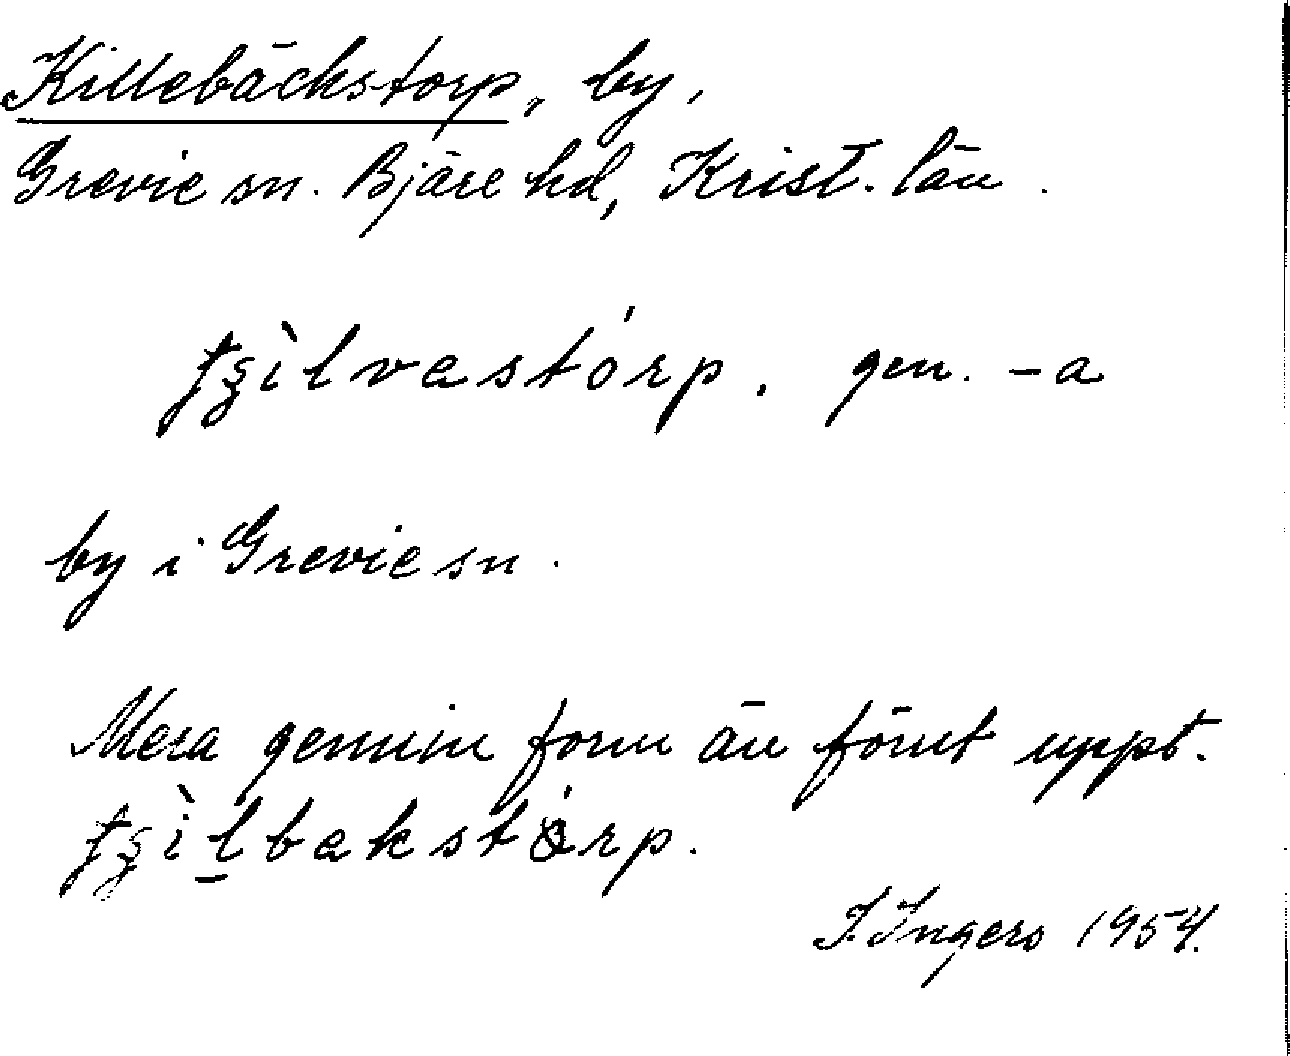 Killebäckstorp, by,
Grevie sn. Bjäre hd, Krist. län.
gen. -a
by i Grevie sn.
Mera genuin form än förut uppt.
I. Ingers 1954.